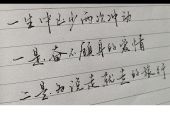 一生中至少两次冲动
一是奋不顾身的爱情
二是知说走就走的旅行